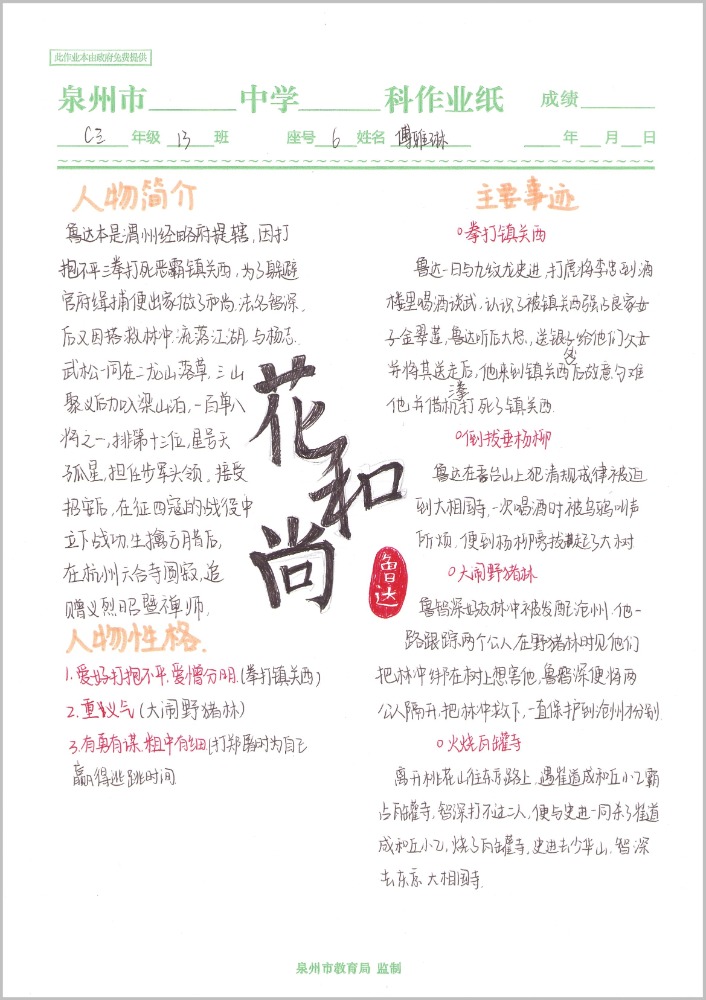 此作业本由政府免费提供
泉州市______中学______科作业纸 成绩______
年级 13 班 座号 6 姓名 傅雅琳 年 月 日
人物简介
鲁达本是渭州经略府提辖,因打
抱不平三拳打死恶霸镇关西,为了躲避
官府缉捕便出家做了和尚,法名智深,
后又因搭救林冲,流落江湖,与杨志、
武松一同在二龙山落草,三山
聚义后加入梁山泊,一百单八
将之一,排第十三位,星号天
孤星,担任步军头领。接受
招安后,在征四寇的战役中
立下战功,生擒方腊后,
在杭州六合寺圆寂,追
赠义烈昭暨禅师。
人物性格.
1.爱好打抱不平,爱憎分明.(拳打镇关西)
2.重义气(大闹野猪林)
3.有勇有谋,粗中有细(打郑屠时为自己
赢得逃跳时间
花和尚
鲁达
主要事迹
拳打镇关西
鲁达一日与九纹龙史进,打虎将李忠到酒
楼里喝酒谈武,认识了被镇关西强占良家女
子金翠莲,鲁达听后大怒,送银子给他们父女
并将其送走后,他来到镇关西后故意刁难
他,并借机三拳打死了镇关西.
倒拔垂杨柳
鲁达在五台山上犯清规戒律被迫
到大相国寺,一次喝酒时被乌鸦叫声
所烦,便到杨柳旁拔起了大树
大闹野猪林
鲁智深好友林冲被发配沧州,他一
路跟踪两个公人在野猪林时见他们
把林冲绑在树上想害他,鲁智深便将两
公人隔开,把林冲救下,一直保护到沧州才分别
火烧瓦罐寺
离开桃花山往东京路上,遇崔道成和丘小乙霸
占瓦罐寺,智深打不过二人,便与史进一同杀了崔道
成和丘小乙,烧了瓦罐寺,史进去少华山,智深
去东京大相国寺.
泉州市教育局 监制